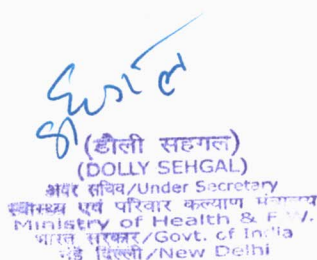 (डौली सहगल)
(DOLLY SEHGAL)
अवर सचिव/Under Secretary
स्वास्थ्य एवं परिवार कल्याण मंत्रालय
Ministry of Health & F.W.
भारत सरकार/Govt. of India
नई दिल्ली/New Delhi